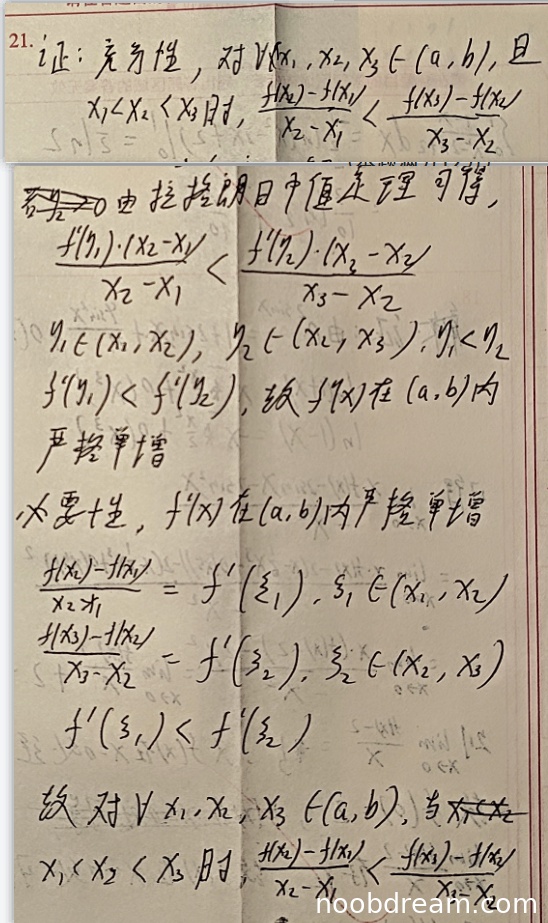 21. 证：充分性，对∀x₁, x₂, x₃∈(a, b), 且
x₁<x₂<x₃时, (f(x₂)-f(x₁))/(x₂-x₁) < (f(x₃)-f(x₂))/(x₃-x₂)
由拉格朗日中值定理可得,
(f'(η₁)·(x₂-x₁))/(x₂-x₁) < (f'(η₂)·(x₃-x₂))/(x₃-x₂)
η₁∈(x₁, x₂), η₂∈(x₂, x₃), η₁<η₂
f'(η₁)<f'(η₂), 故f'(x)在(a, b)内
严格单增
必要性, f'(x)在(a, b)内严格单增
(f(x₂)-f(x₁))/(x₂-x₁) = f'(ξ₁), ξ₁∈(x₁, x₂)
(f(x₃)-f(x₂))/(x₃-x₂) = f'(ξ₂), ξ₂∈(x₂, x₃)
f'(ξ₁)<f'(ξ₂)
故对∀x₁, x₂, x₃∈(a, b), 当
x₁<x₂<x₃时, (f(x₂)-f(x₁))/(x₂-x₁) < (f(x₃)-f(x₂))/(x₃-x₂)
noobdream.com